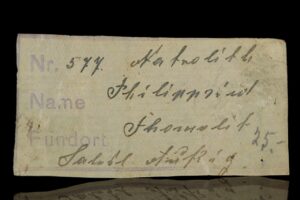 Nr. 577. Natrolith
Name Philippsist
Fundort Thomalit 25.-
Salesl Aussig